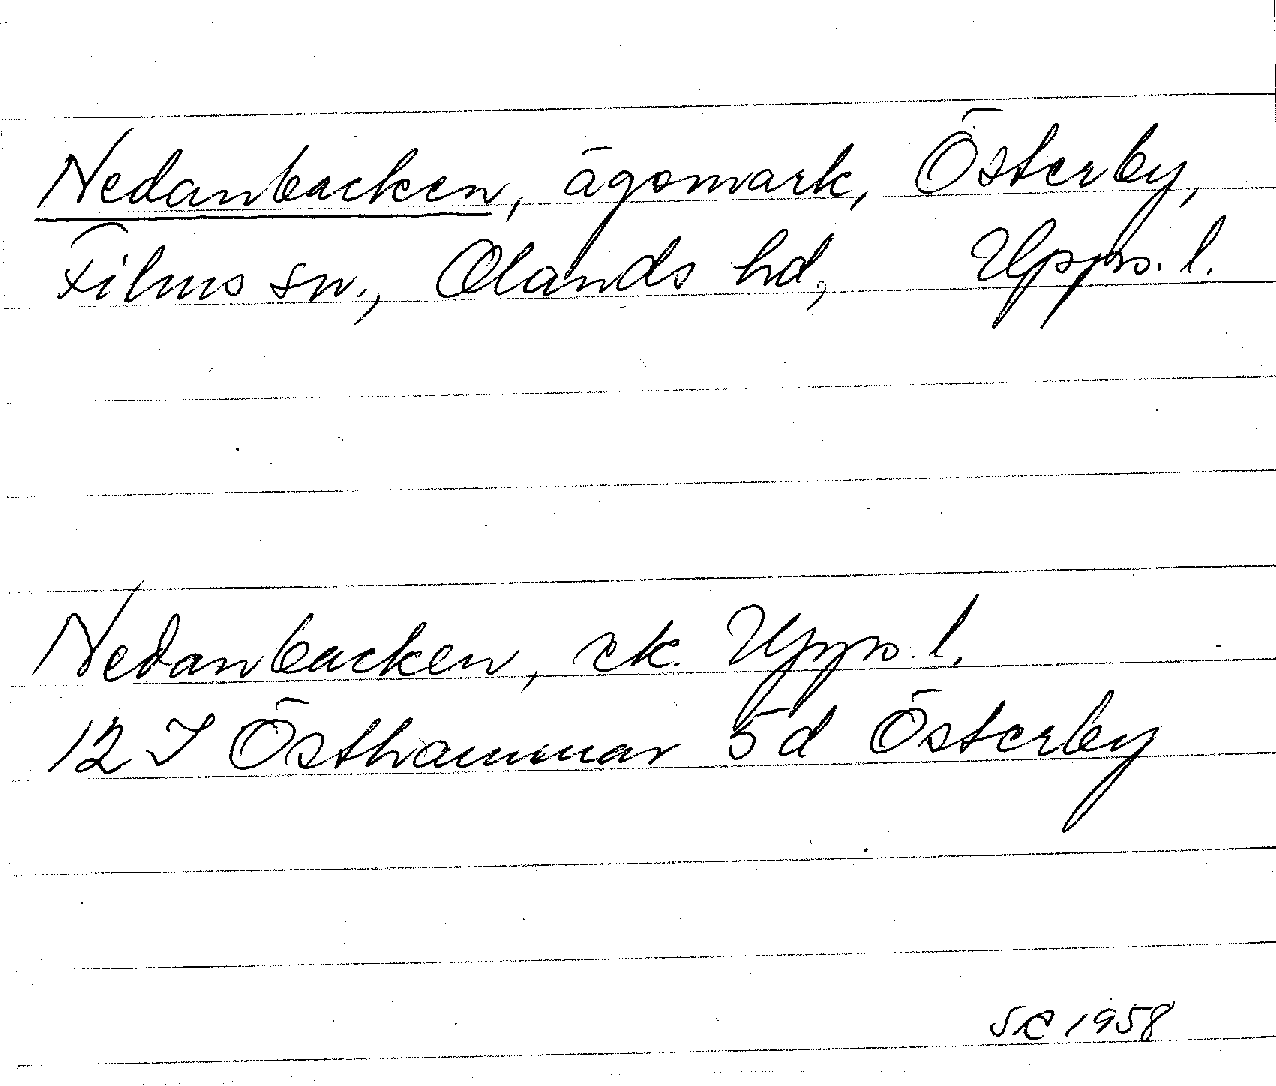 Nedanbacken, ägomark, Österby,
Films sn., Olands hd, Upps. l.
Nedanbacken, ek. Upps. l.
12 I Östhammar 5d Österby
SC 1958